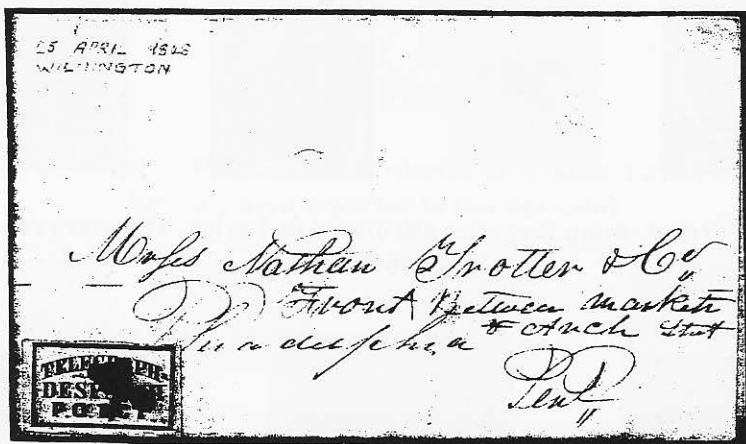 25 APRIL 1848
WILMINGTON
Messs Nathan Trotter & Co
Front Between Market
& Arch Stret
Philadelphia
Pena
TELEGRAPH
DESPATCH
P.O.